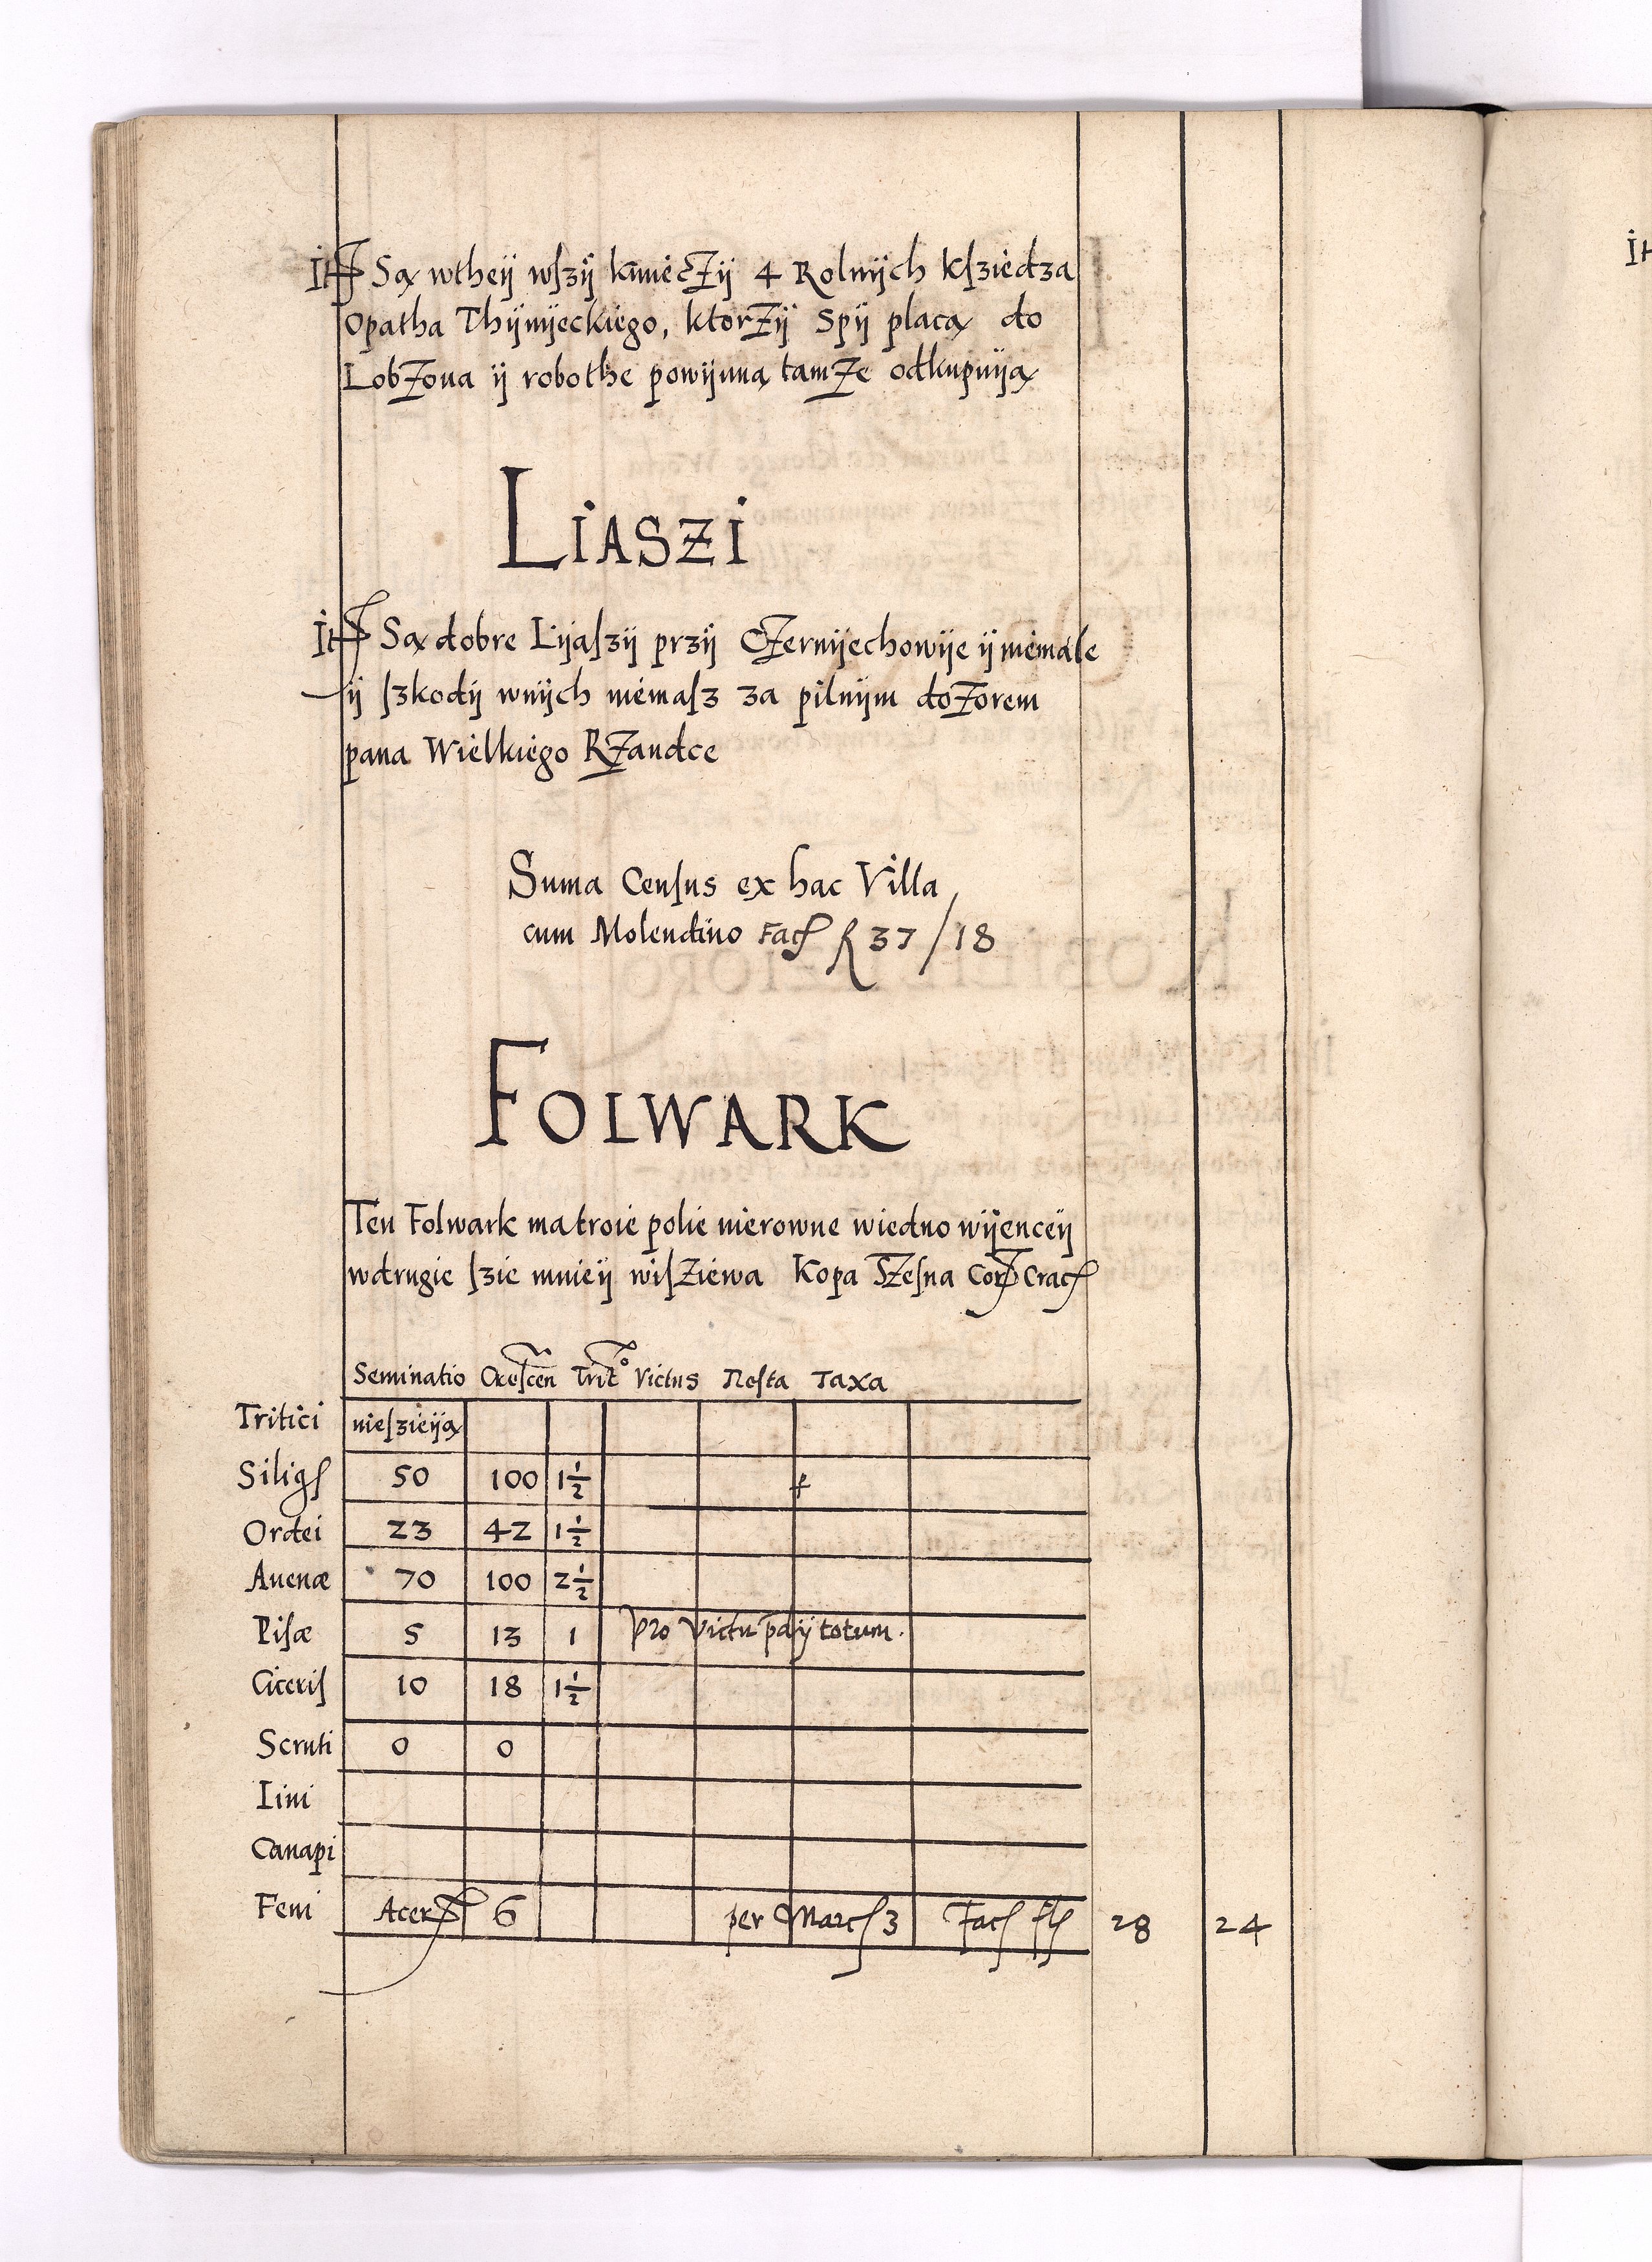 Itē Są wtheÿ wſzÿ kmiećzÿ 4 Rolnÿch kſziedza
Opatha Thÿnÿeckiego, ktorzÿ Spÿ placą do
Lobzona ÿ robothe powÿnną tamze odkupuÿą
LIASZI
Itē Są dobre Lÿaſzÿ przÿ Czernÿechowÿe ÿ niemale
ÿ ſzkodÿ wnÿch niemaſz za pilnÿm dozorem
pana Wielkiego Rzandce
Suma Cenſus ex hac Villa
cum Molendino Facſ ſ 37/18
FOLWARK
Ten Folwark ma troie polie nierowne wiedno wÿenceÿ
wdrugie ſzie mnieÿ wiſziewa Kopa Szeſna Cor Cracſ
Seminatio Creſcen Trito Victus Reſta Taxa
Tritici nieſzieÿą
Siligſ 50 100 1½
Ordei 23 42 1½
Auenæ 70 100 2½
Piſæ 5 13 1 Pro Victu pdÿ totum.
Ciceriſ 10 18 1½
Scruti 0 0
Lini
Canapi
Feni Acer 6 per Marcſ 3 Facſ flſ 28 24
It